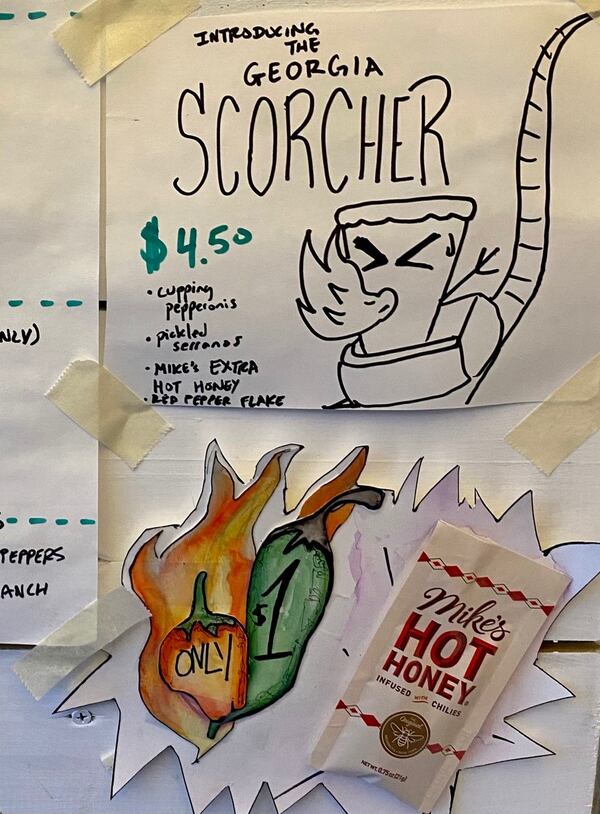 INTRODUCING
THE
GEORGIA
SCORCHER
$4.50
• cupping
pepperonis
• pickled
serranos
• MIKE'S EXTRA
HOT HONEY
• RED PEPPER FLAKE
NLY)
PEPPERS
ANCH
ONLY
$1
Mike's
HOT
HONEY
INFUSED WITH CHILIES
Original
NET WT. 0.75 oz (21g)